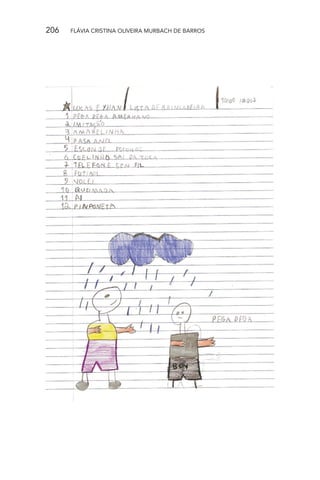 206 FLÁVIA CRISTINA OLIVEIRA MURBACH DE BARROS
LUCAS E YHAN LISTA DE BRINCADEIRA
1 PEGA PEGA AMERICANO
2 IMITAÇÃO
3 AMARELINHA
4 PASA ANEL
5 ESCONDE ESCONDE
6 COELINHO SAI DA TOCA
7 TELEFONE SEN FIL
8 FUTIBOL
9 VOLEI
10 QUEIMADA
11
12 PIRPONETA
PEGA PEGA
BOY